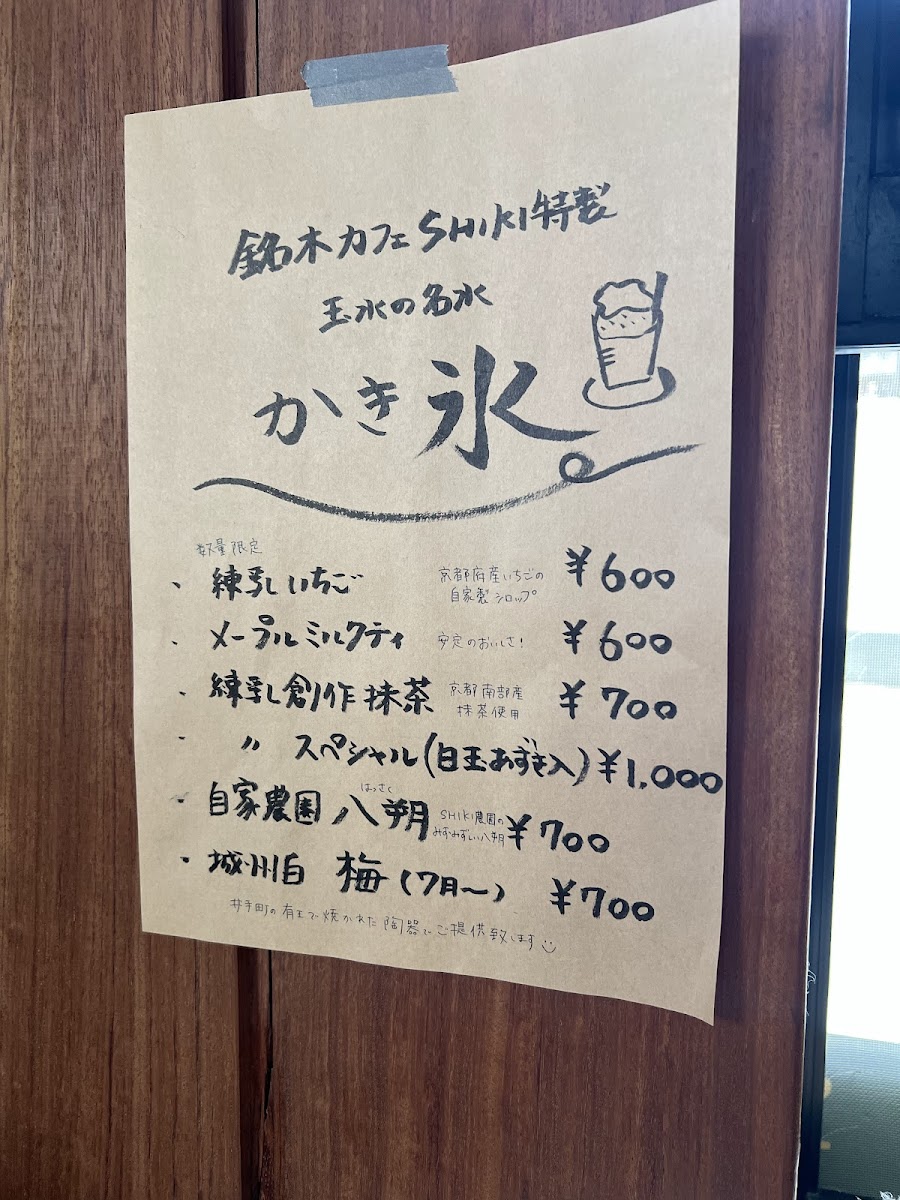 銘木カフェSHIKI特製
玉水の名水
かき氷
数量限定
・練乳いちご 京都府産いちごの自家製シロップ ¥600
・メープルミルクティ 安定のおいしさ! ¥600
・練乳創作抹茶 京都南部産抹茶使用 ¥700
・〃 スペシャル(白玉あずき入) ¥1,000
・自家農園 八朔 はっさく SHIKI農園のみずみずしい八朔 ¥700
・城州白 梅 (7月〜) ¥700
井手町の有王で焼かれた陶器でご提供致します